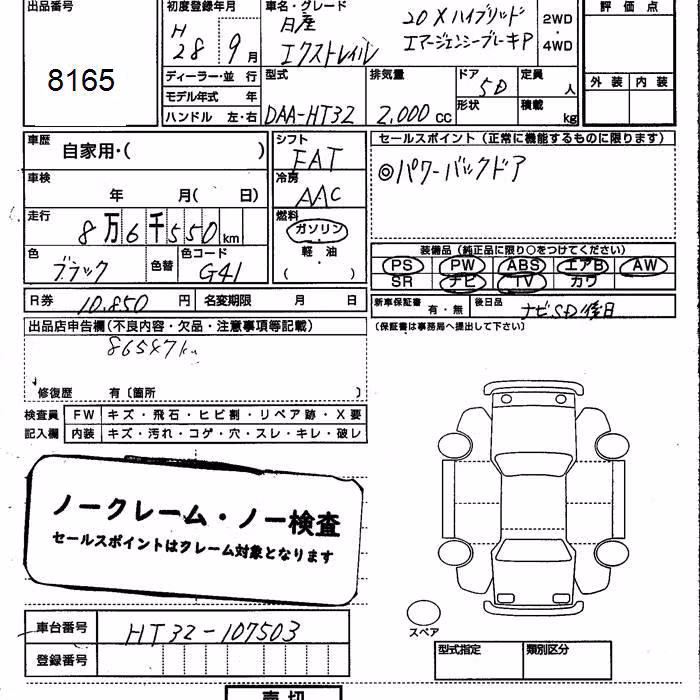 出品番号
8165
初度登録年月
H
28 9月
車名・グレード
日産
エクストレイル
20Xハイブリッド
エマージェンシーブレーキP
2WD
・
4WD
評価点
外装 内装
ディーラー・並行
モデル年式 年
ハンドル 左・右
型式
DAA-HT32
排気量
2,000 cc
ドア
5D
形状
定員
人
積載
kg
車歴
自家用・( )
車検
年 月( 日)
走行
8万6千550km
色
ブラック
色替
色コード
G41
シフト
FAT
冷房
AAC
燃料
ガソリン
・
軽油
( )
セールスポイント (正常に機能するものに限ります)
◎パワーバックドア
装備品(純正品に限り○をつけてください)
PS PW ABS エアB AW
SR ナビ TV カワ
R券 10,850円
名変期限 月 日
新車保証書
有・無
後日品
ナビSD後日
(保証書は事務局へ提出して下さい)
出品店申告欄(不良内容・欠品・注意事項等記載)
86547k
修復歴 有〔箇所 〕
検査員
記入欄
FW キズ・飛石・ヒビ割・リペア跡・X要
内装 キズ・汚れ・コゲ・穴・スレ・キレ・破レ
ノークレーム・ノー検査
セールスポイントはクレーム対象となります
スペア
車台番号
HT32-107503
登録番号
型式指定
類別区分
売切